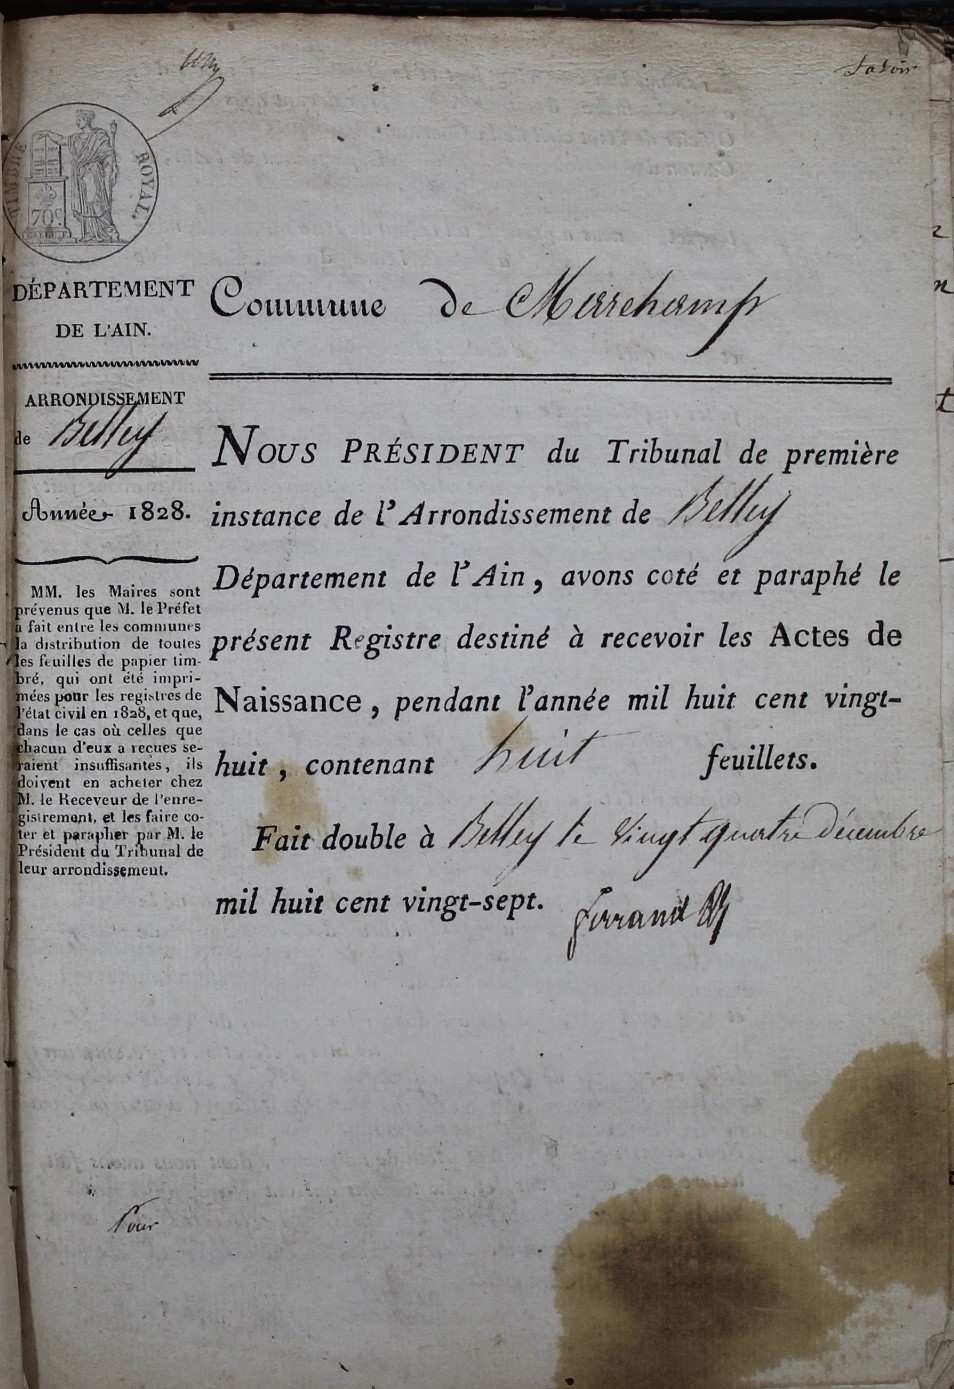 TIMBRE ROYAL.
70c
DÉPARTEMENT
DE L'AIN.
ARRONDISSEMENT
de Belley
Année 1828.
MM. les Maires sont
prévenus que M. le Préfet
a fait entre les communes
la distribution de toutes
les feuilles de papier tim-
bré, qui ont été impri-
mées pour les registres de
l'état civil en 1828, et que,
dans le cas où celles que
chacun d'eux a reçues se-
raient insuffisantes, ils
doivent en acheter chez
M. le Receveur de l'enre-
gistrement, et les faire co-
ter et parapher par M. le
Président du Tribunal de
leur arrondissement.
Commune de Marchamp
NOUS PRÉSIDENT du Tribunal de première
instance de l'Arrondissement de Belley
Département de l'Ain, avons coté et paraphé le
présent Registre destiné à recevoir les Actes de
Naissance, pendant l'année mil huit cent vingt-
huit, contenant huit feuillets.
Fait double à Belley le vingt quatre décembre
mil huit cent vingt-sept.
Ferrand
Pour